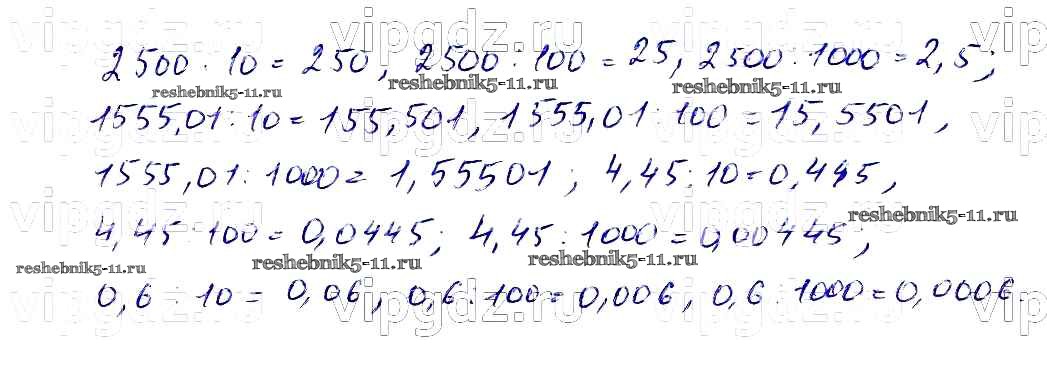 vipgdz.ru vipgdz.ru vipgdz.ru vip
2500 : 10 = 250, 2500 : 100 = 25, 2500 : 1000 = 2,5;
reshebnik5-11.ru reshebnik5-11.ru reshebnik5-11.ru
1555,01 : 10 = 155,501, 1555,01 : 100 = 15,5501,
vipgdz.ru vipgdz.ru vipgdz.ru vip
1555,01 : 1000 = 1,55501; 4,45 : 10 = 0,445,
vipgdz.ru vipgdz.ru vipgdz.ru vip
reshebnik5-11.ru
4,45 : 100 = 0,0445; 4,45 : 1000 = 0,00445,
reshebnik5-11.ru reshebnik5-11.ru reshebnik5-11.ru
0,6 : 10 = 0,06, 0,6 : 100 = 0,006, 0,6 : 1000 = 0,0006.
vipgdz.ru vipgdz.ru vipgdz.ru vip